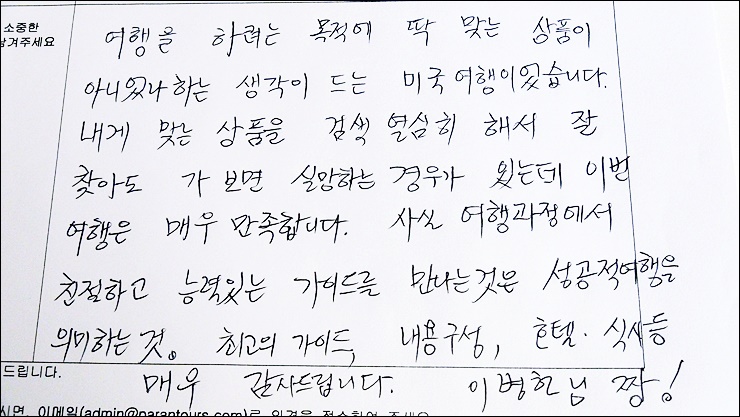 소중한
남겨주세요
여행을 하려는 목적에 딱 맞는 상품이
아니었나 하는 생각이 드는 미국여행이었습니다.
내게 맞는 상품을 검색 열심히 해서 잘
찾아도 가 보면 실망하는 경우가 있는데 이번
여행은 매우 만족합니다. 사실 여행과정에서
친절하고 능력있는 가이드를 만나는것은 성공적여행을
의미하는 것. 최고의 가이드, 내용구성, 호텔·식사등
드립니다.
매우 감사드립니다. 이병헌님 짱!
시면, 이메일(admin@parantours.com)로 의견을 접수하여 주세요